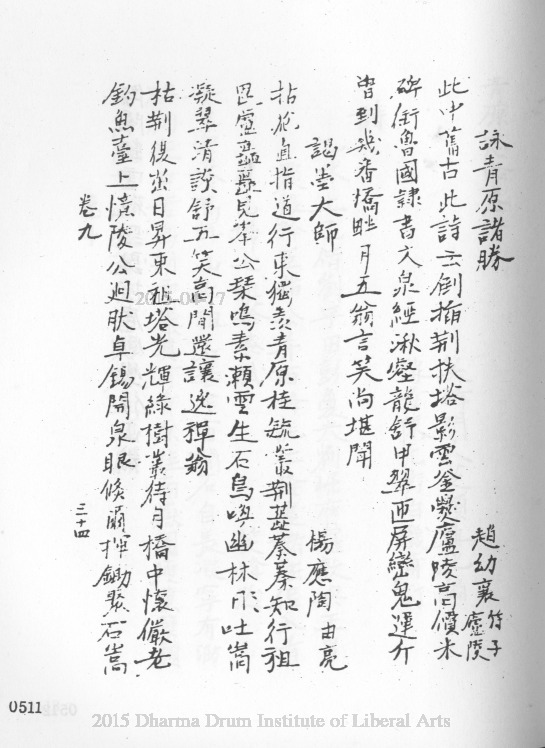 詠青原諸勝
趙幼襄 竹子 廬陵
此中舊古此詩云倒插荊扶塔影雲釜爨廬陵高價米
碑銜魯國隸書文泉經湫壑龍舒甲翠匝屏巒鬼運斤
曾到幾番橋畔月五翁言笑尚堪聞
謁墨大師 楊應陶 由亮
拈花直指道行東獨羨青原桂毓叢荊茁蓁蓁知行祖
毘盧矗矗見峯公琴鳴素瀨雲生石鳥喚幽林吐嵩
凝翠清談舒五笑高閒還讓逸禪翁
枯荊復茁日昇東祖塔光輝綠樹叢待月橋中懷儼老
釣魚臺上憶陵公迴眸卓錫開泉眼倏爾揮鋤聚石嵩
卷九 三十四
0511
2015 Dharma Drum Institute of Liberal Arts